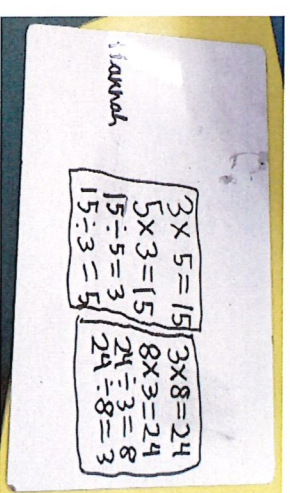 Hannah
3 × 5 = 15
5 × 3 = 15
15 ÷ 5 = 3
15 ÷ 3 = 5
3 × 8 = 24
8 × 3 = 24
24 ÷ 3 = 8
24 ÷ 8 = 3